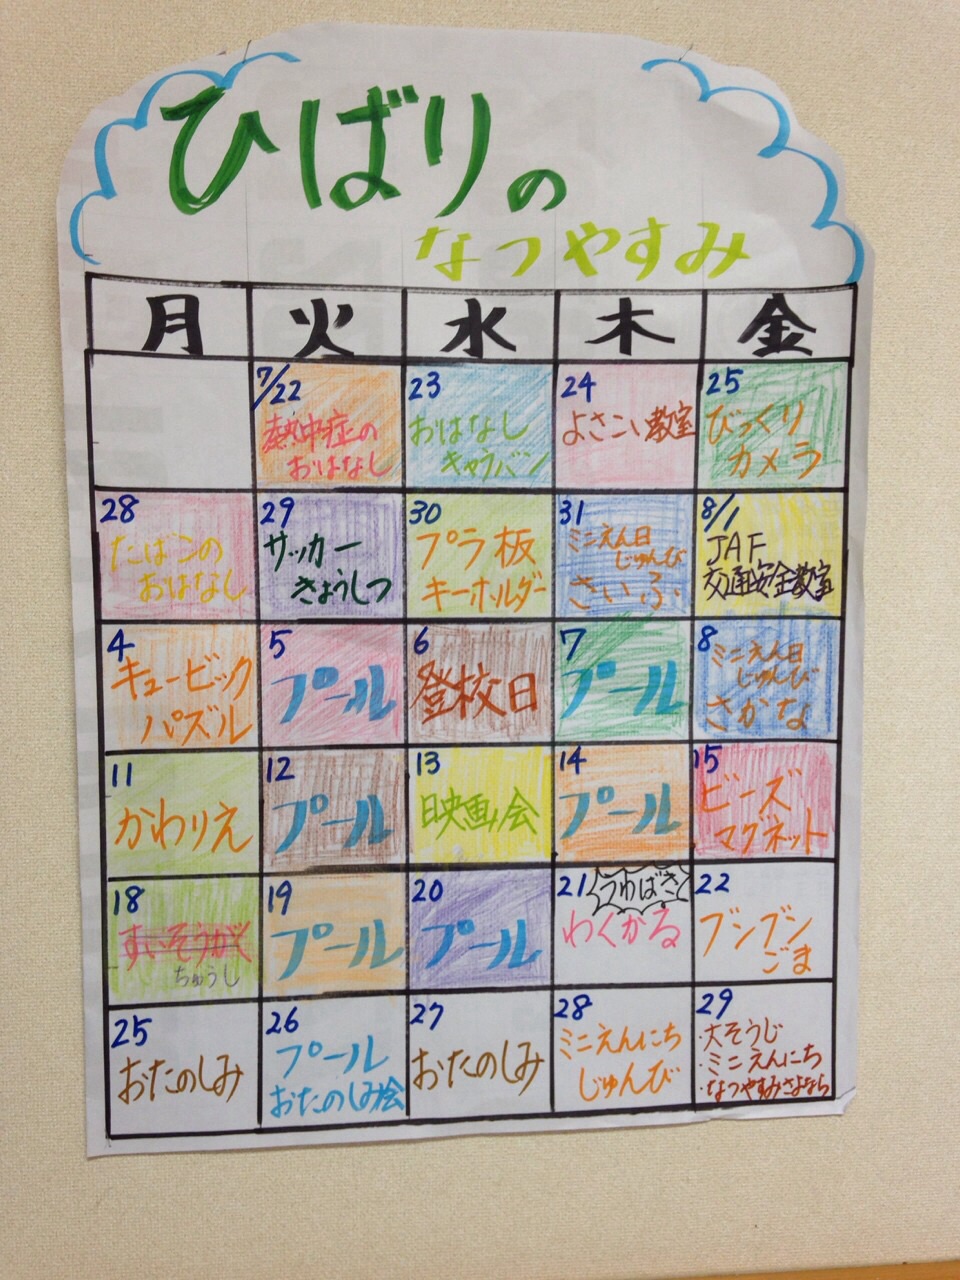 ひばりの
なつやすみ
月 火 水 木 金
7/22
熱中症の
おはなし
23
おはなし
きゃらバン
24
よさこい教室
25
びっくり
カメラ
28
たばこの
おはなし
29
サッカー
きょうしつ
30
プラ板
キーホルダー
31
ミニえん日
じゅんび
さいふ
8/1
JAF
交通安全教室
4
キュービック
パズル
5
プール
6
登校日
7
プール
8
ミニえん日
じゅんび
さかな
11
かわりえ
12
プール
13
映画会
14
プール
15
ビーズ
マグネット
18
すいそうがく
ちゅうし
19
プール
20
プール
21
うわばき
わくかる
22
ブンブン
ごま
25
おたのしみ
26
プール
おたのしみ絵
27
おたのしみ
28
ミニえんにち
じゅんび
29
・大そうじ
・ミニえんにち
・なつやすみさよなら